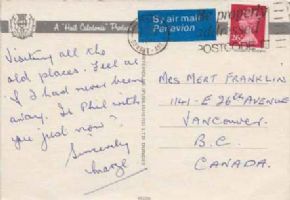 A "Hail Caledonia" Product
By air mail
Par avion
POSTCODE
Visiting all the
old places. Feel as
if I had never been
away. Is Phil with
you just now?
Sincerely
Mrs Mert Franklin
1141 - E 26th Avenue
Vancouver
B.C.
Canada.